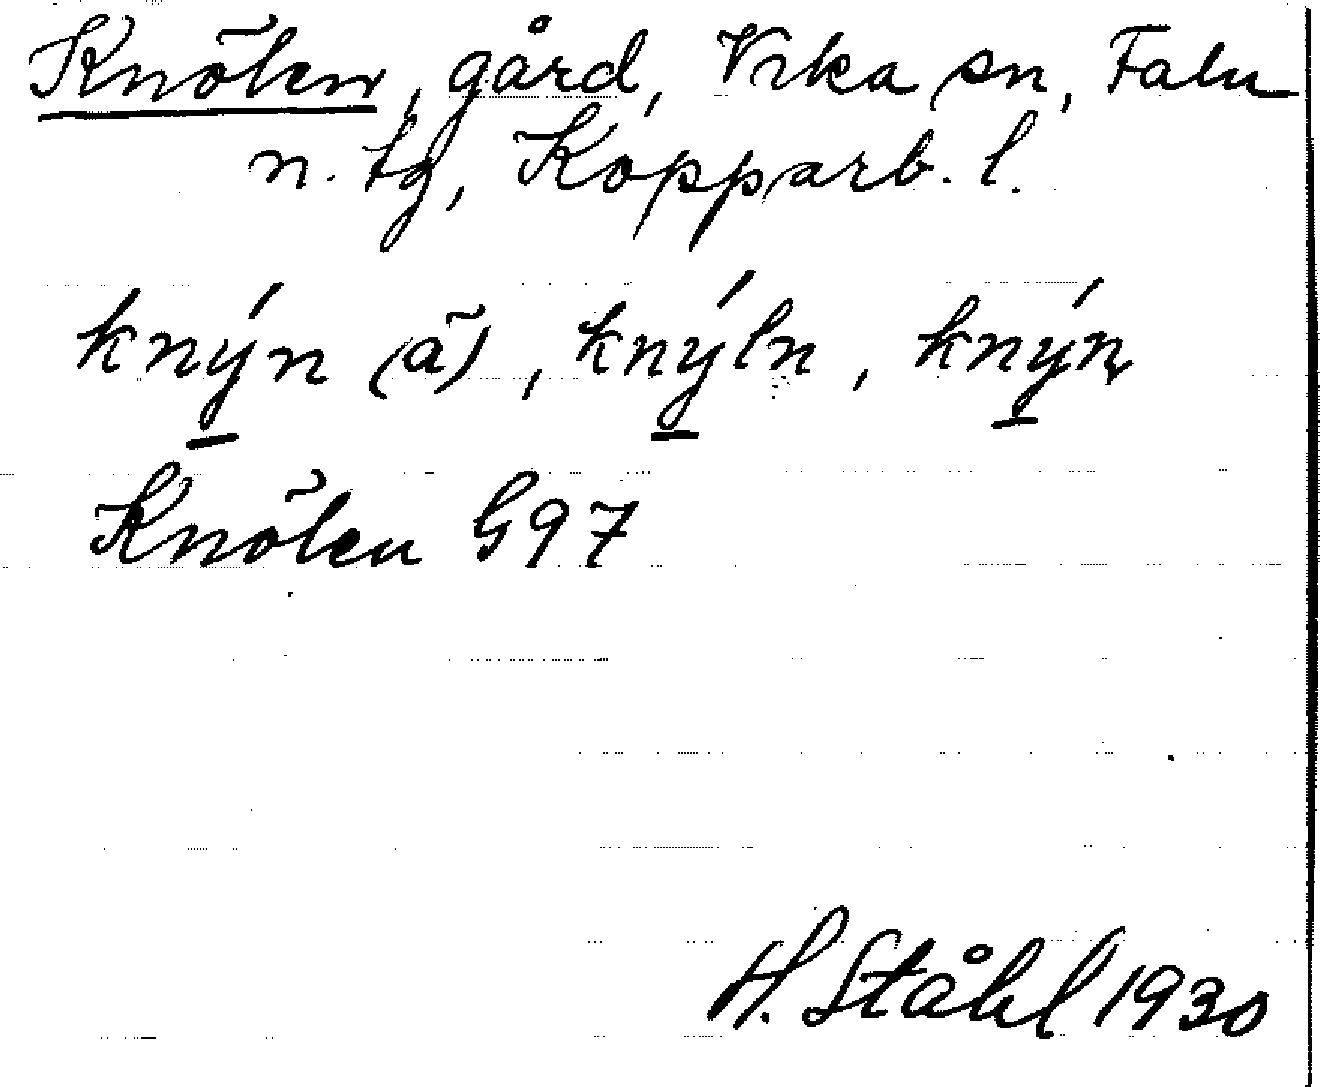 Knölen, gård, Vika sn, Falu
n. tg, Kopparb. l.
knýn (ä), knýln, knýn
Knölen G97
H. Ståhl 1930